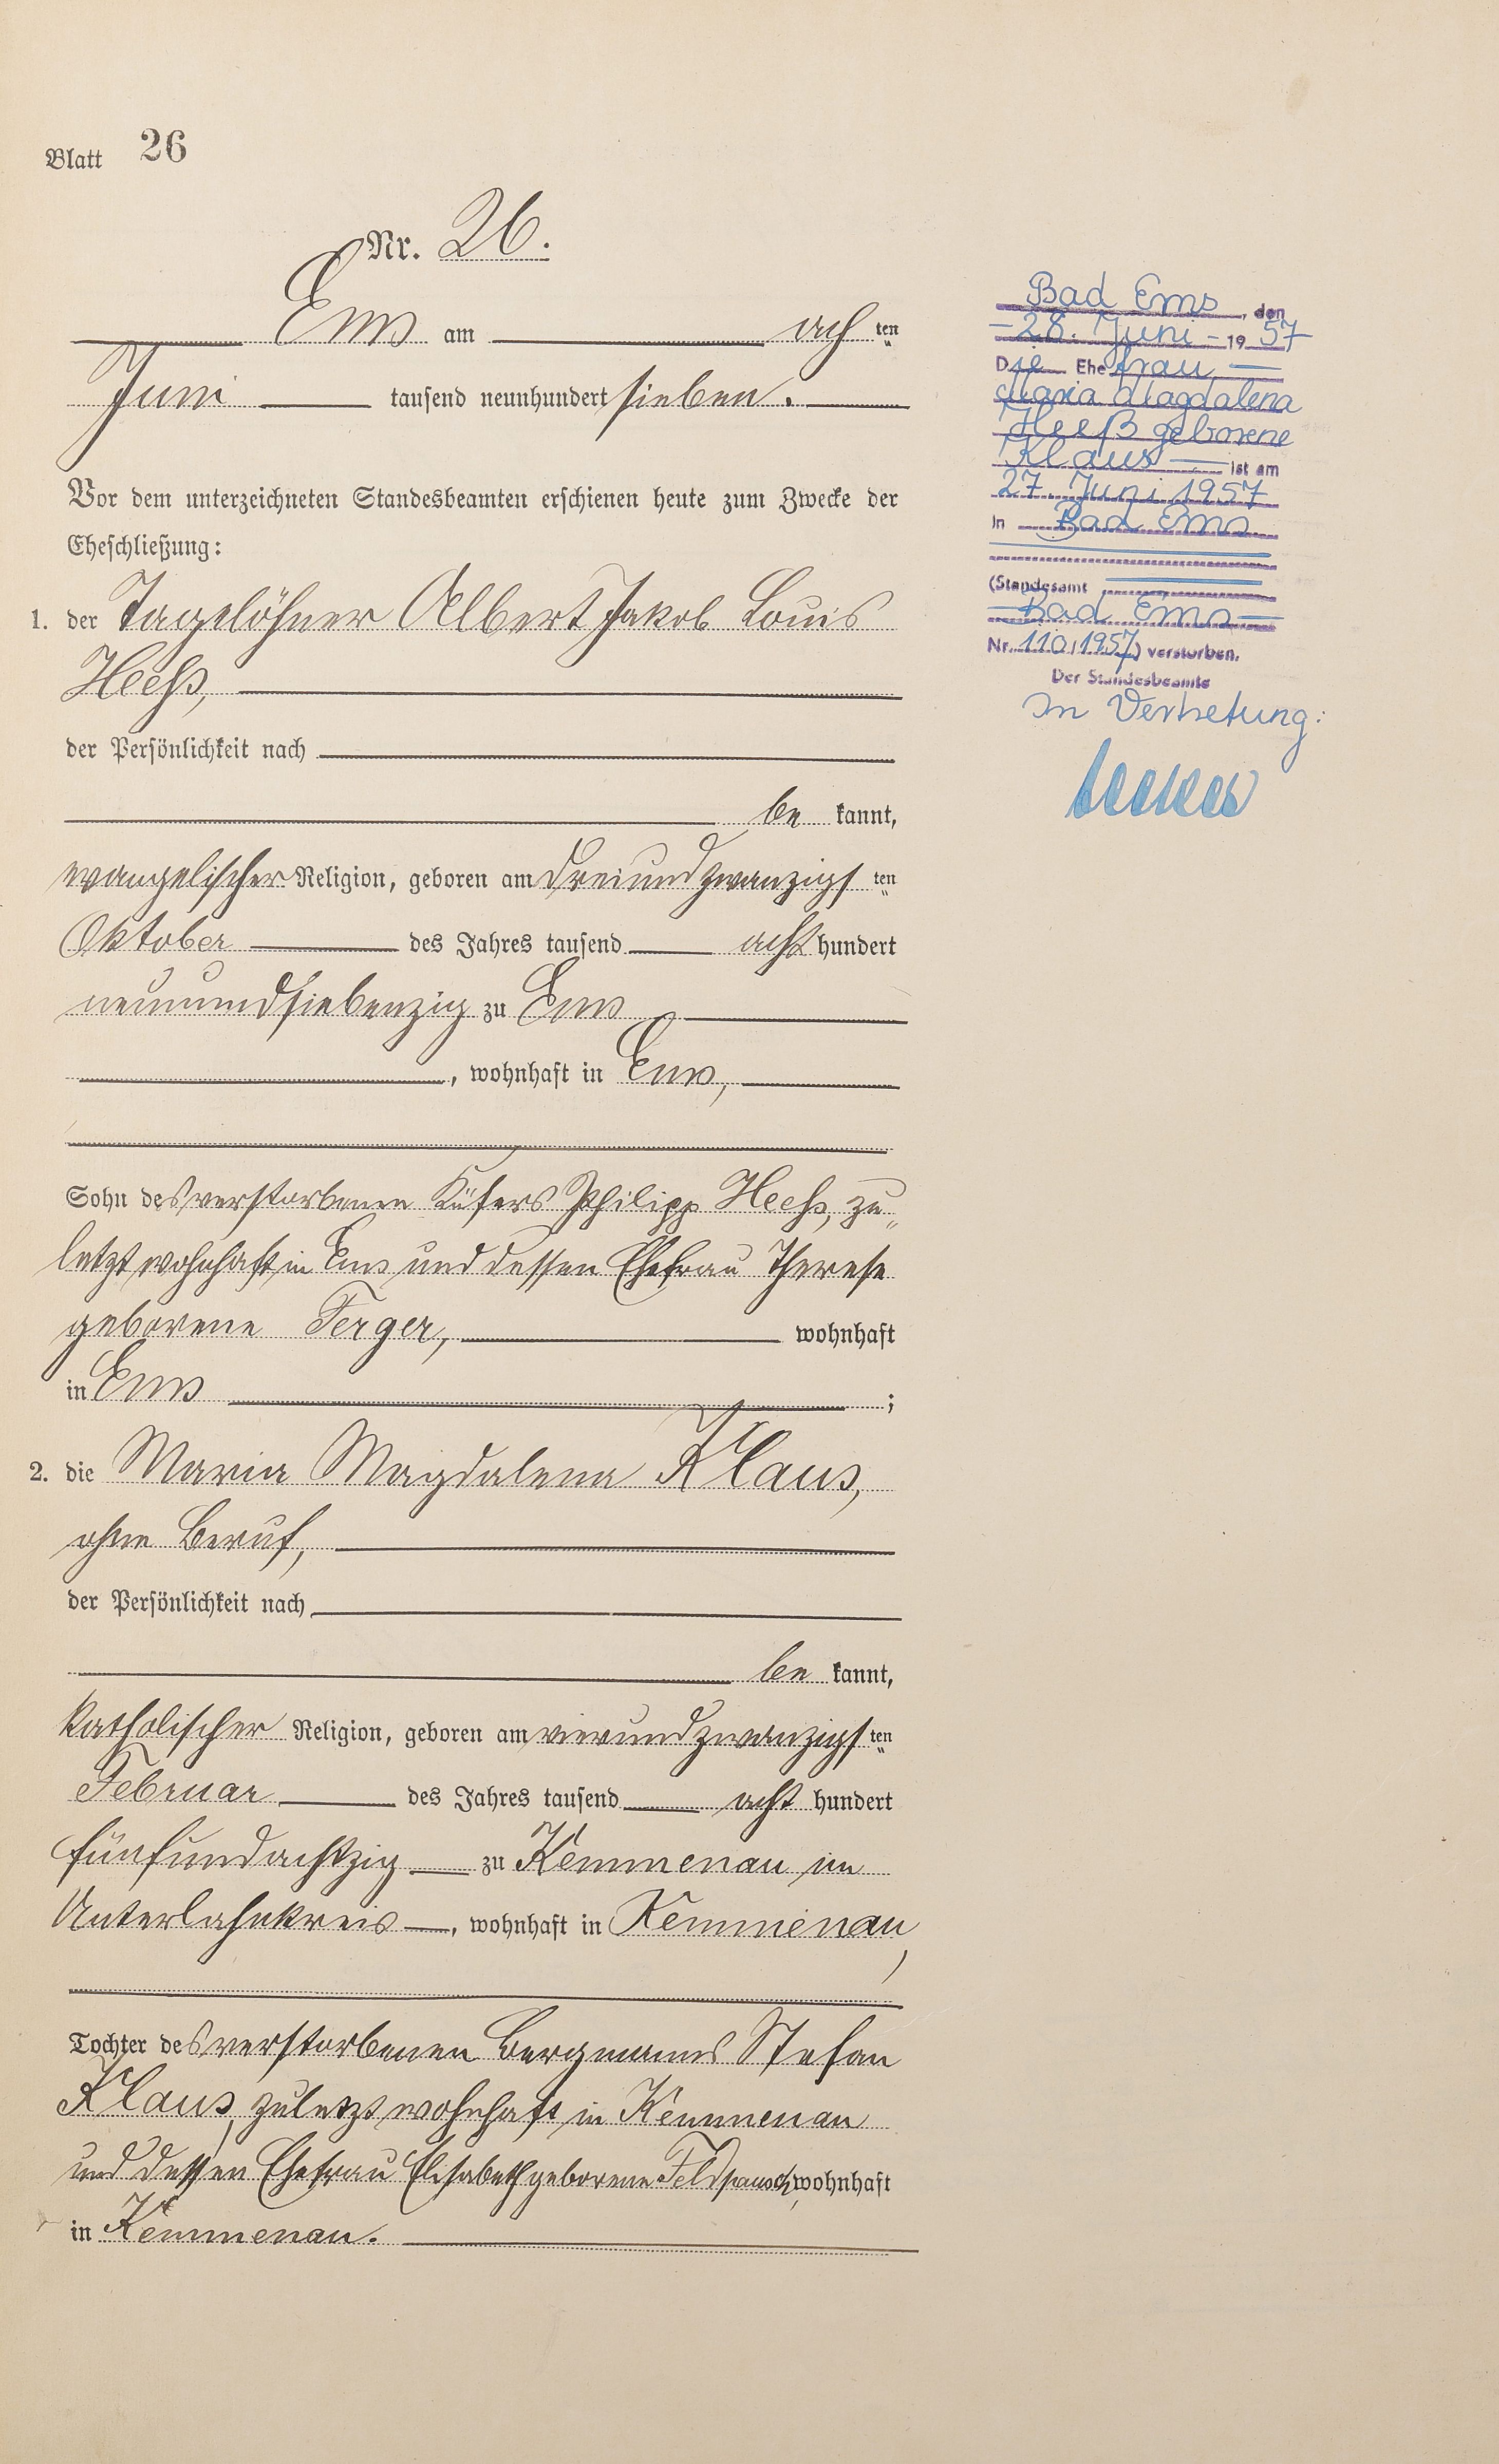 Blatt 26
Nr. 26.
Ems am ach ten
Juni tausend neunhundert sieben.
Vor dem unterzeichneten Standesbeamten erschienen heute zum Zwecke der
Eheschließung:
1. der Tagelöhner Albert Jakob Louis
Heeß,
der Persönlichkeit nach
be kannt,
evangelischer Religion, geboren am dreiundzwanzigs ten
Oktober des Jahres tausend acht hundert
neunundsiebenzig zu Ems
, wohnhaft in Ems,
Sohn des verstorbenen Küfers Philipp Heeß, zu„
letzt wohnhaft in Ems und dessen Ehefrau Therese
geborene Ferger, wohnhaft
in Ems ;
2. die Maria Magdalena Klaus,
ohne Beruf,
der Persönlichkeit nach
be kannt,
katholischer Religion, geboren am vierundzwanzigs ten
Februar des Jahres tausend acht hundert
fünfundachtzig zu Kemmenau im
Unterlahnkreis, wohnhaft in Kemmenau,
Tochter des verstorbenen Bergmanns Stefan
Klaus, zuletzt wohnhaft in Kemmenau
und dessen Ehefrau Elisabeth geborene Feldpausch, wohnhaft
in Kemmenau.
Bad Ems, den
28. Juni 1957
Die Ehefrau
Maria Magdalena
Heeß geborene
Klaus ist am
27. Juni 1957
in Bad Ems
(Standesamt
Bad Ems
Nr. 110/1957) verstorben.
Der Standesbeamte
In Vertretung: